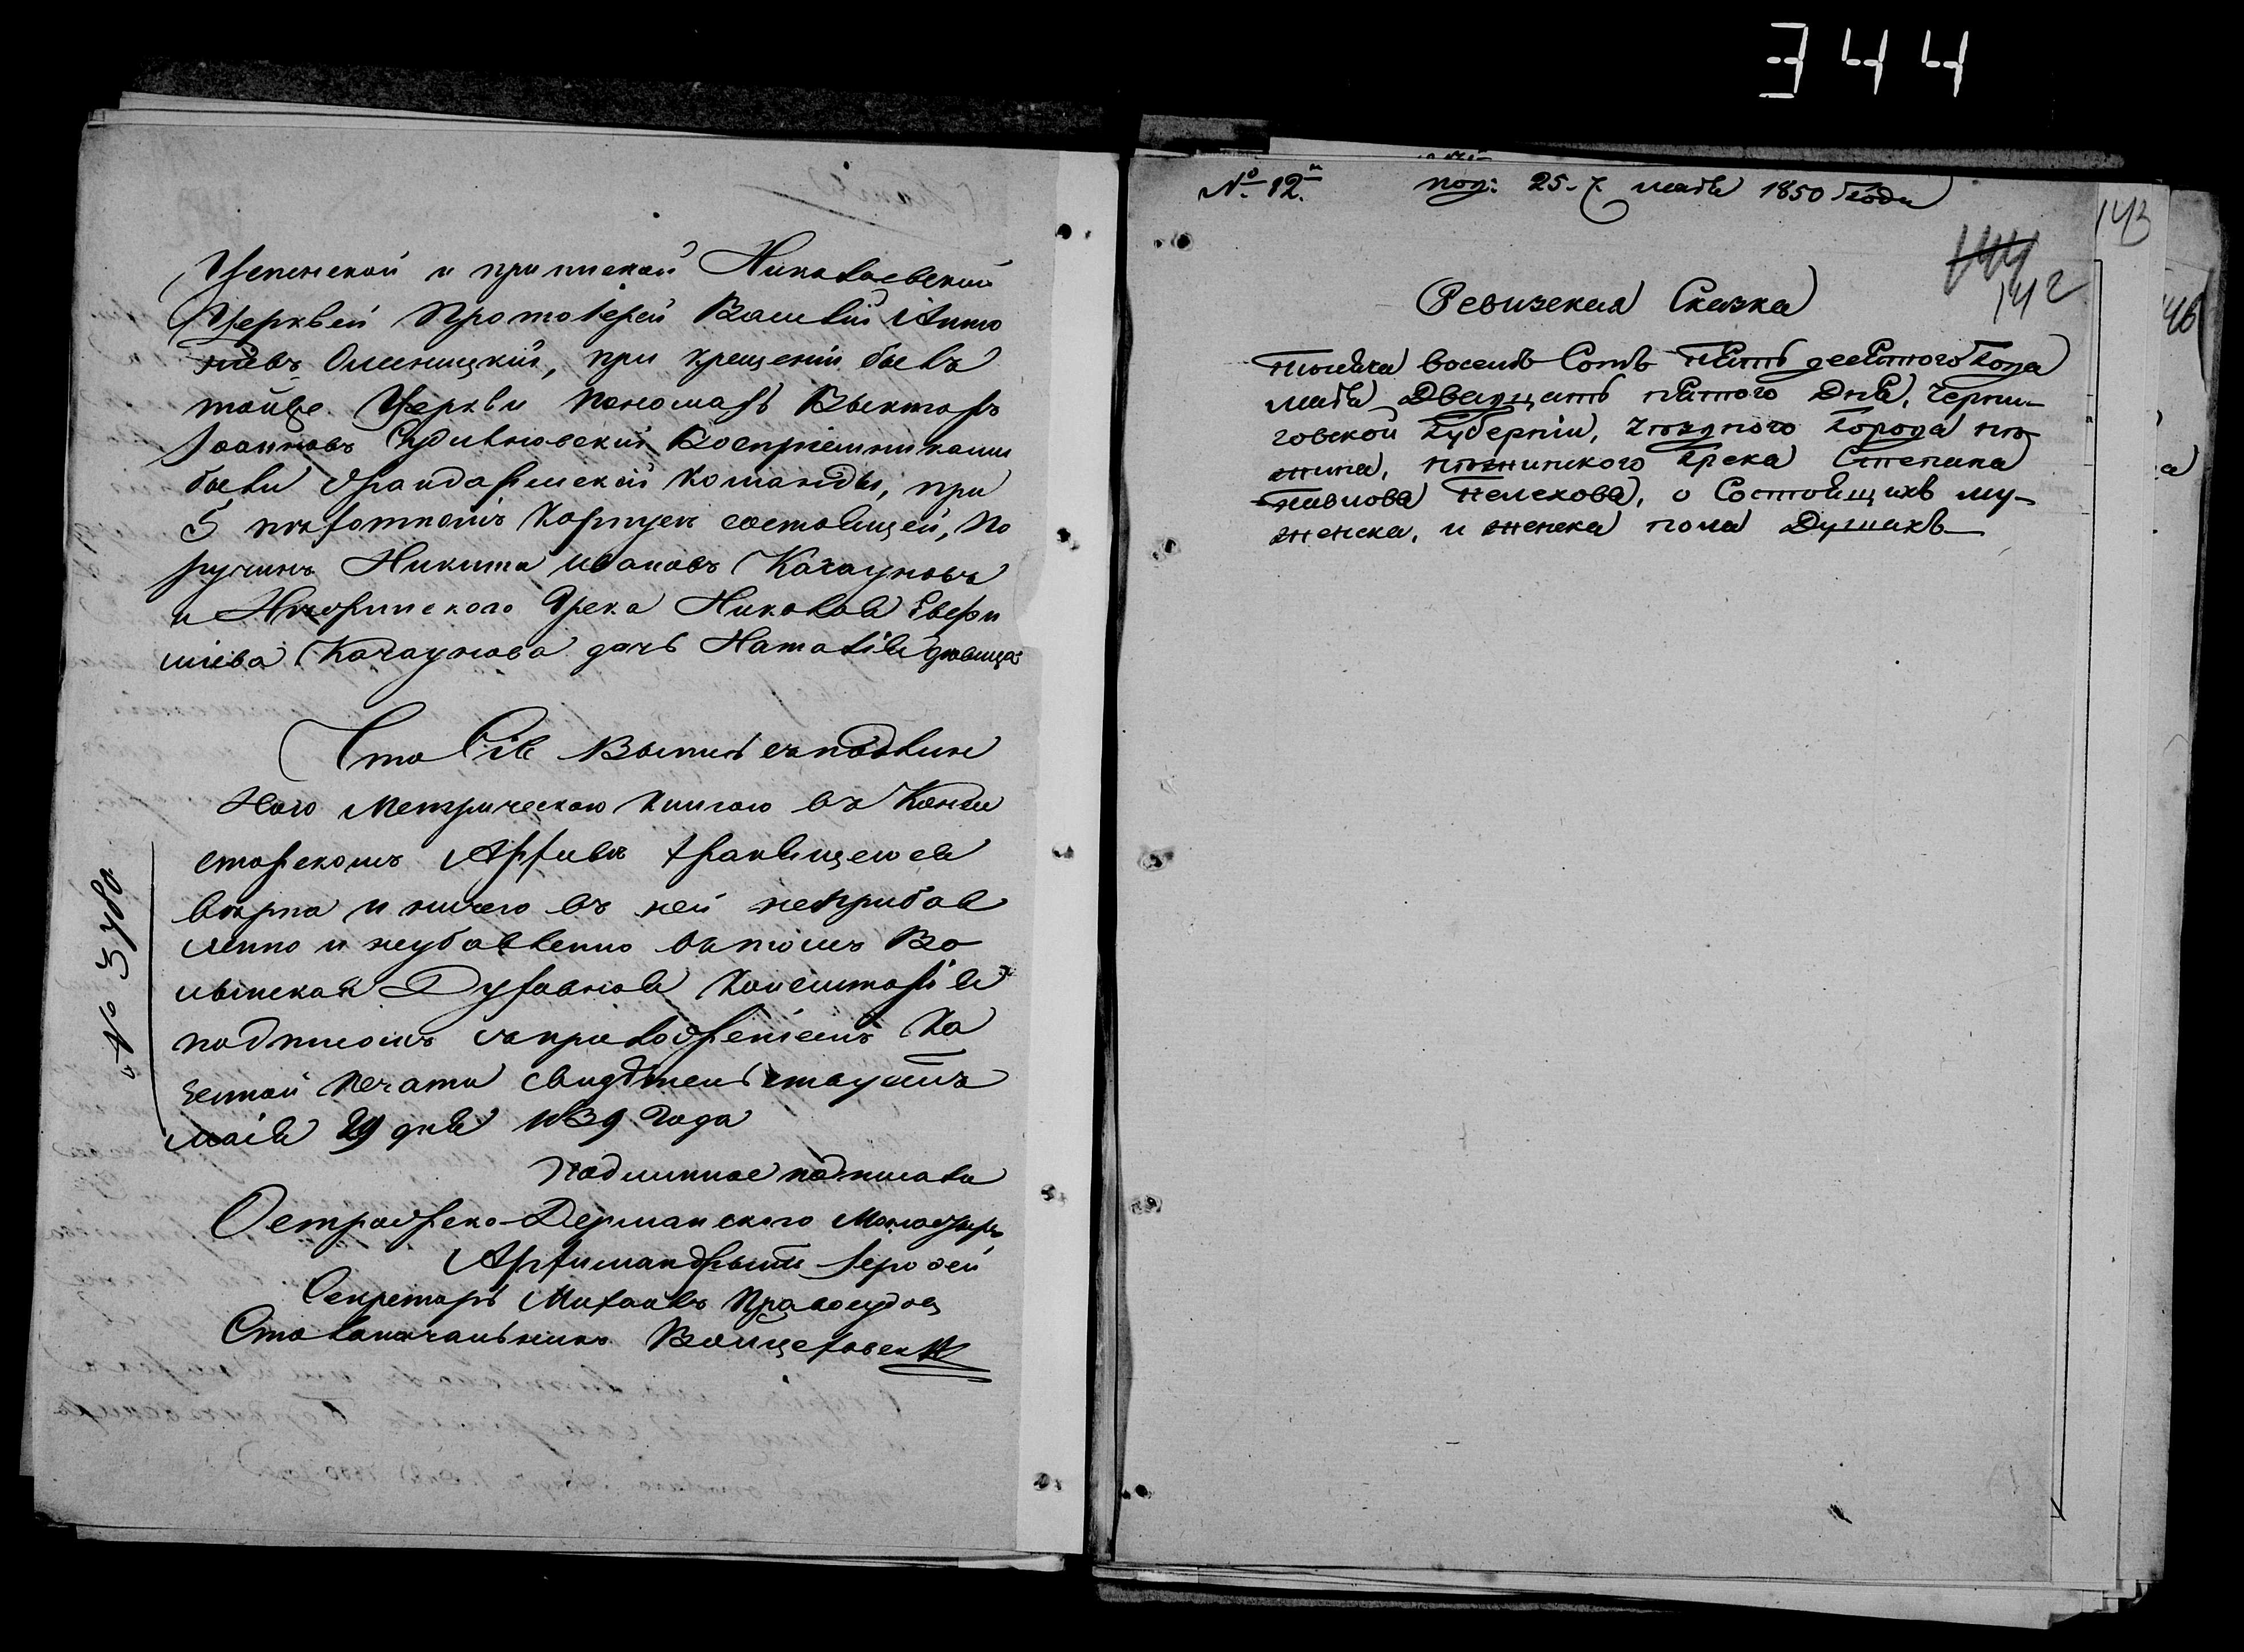 344
Успенской и приписной Николаевской
Церквей Протоіерей Василій Анто
ніевъ Оменицкій, при крещеніи былъ
тойже Церкви пономарь Викторъ
Іоанновъ Воспріемниками
были Жандармской Команды, при
5 пѣхотномъ Корпусѣ состоящей, По
ручикъ Никита Ивановъ Качауновъ
и Нѣжинского Грека Николая
Качаунова дочь Наталія дѣвица
Что Сія Выпись съ подлин
ною Метрическою книгою въ Конси
сторскомъ Архивѣ хранящеюся
вѣрна и ничего въ ней неприбав
лено и неубавлено въ томъ Во
лынская Духовная Консисторія
подписомъ съ приложеніемъ Ка
зенной печати свидѣтельствуетъ
маія 29 дня 1839 года
Подлинное подписали
Острожско-Дерманского Монастыря
Архимандритъ Іерофей
Секретарь Михаилъ Правосудов
Столоначальникъ
№
№ 12.й под: 25-г мая 1850 года
144
142
143
146
Ревизская Сказка
тысяча восемь Сотъ пять десятого года
мая Двадцать пятого Дня, Черни-
говской Губерніи, уѣздного города нѣ-
жина, нѣжинского грека Степана
павлова пелехова, о Состоящихъ му-
женска, и женска пола Душахъ